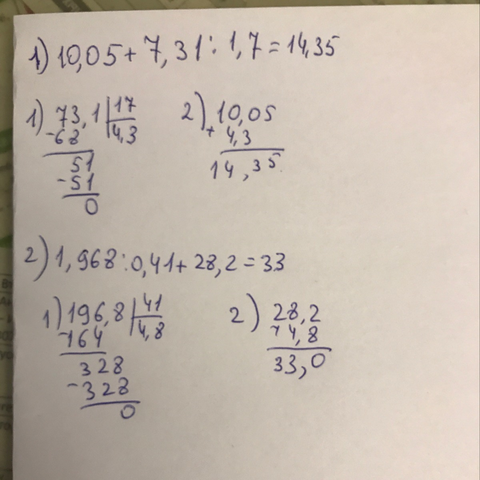 1) 10,05 + 7,31 : 1,7 = 14,35
1) 73,1 | 17 2) 10,05
- 68 4,3 + 4,3
51 14,35
- 51
0
2) 1,968 : 0,41 + 28,2 = 33
1) 196,8 | 41 2) 28,2
- 164 4,8 + 4,8
328 33,0
- 328
0